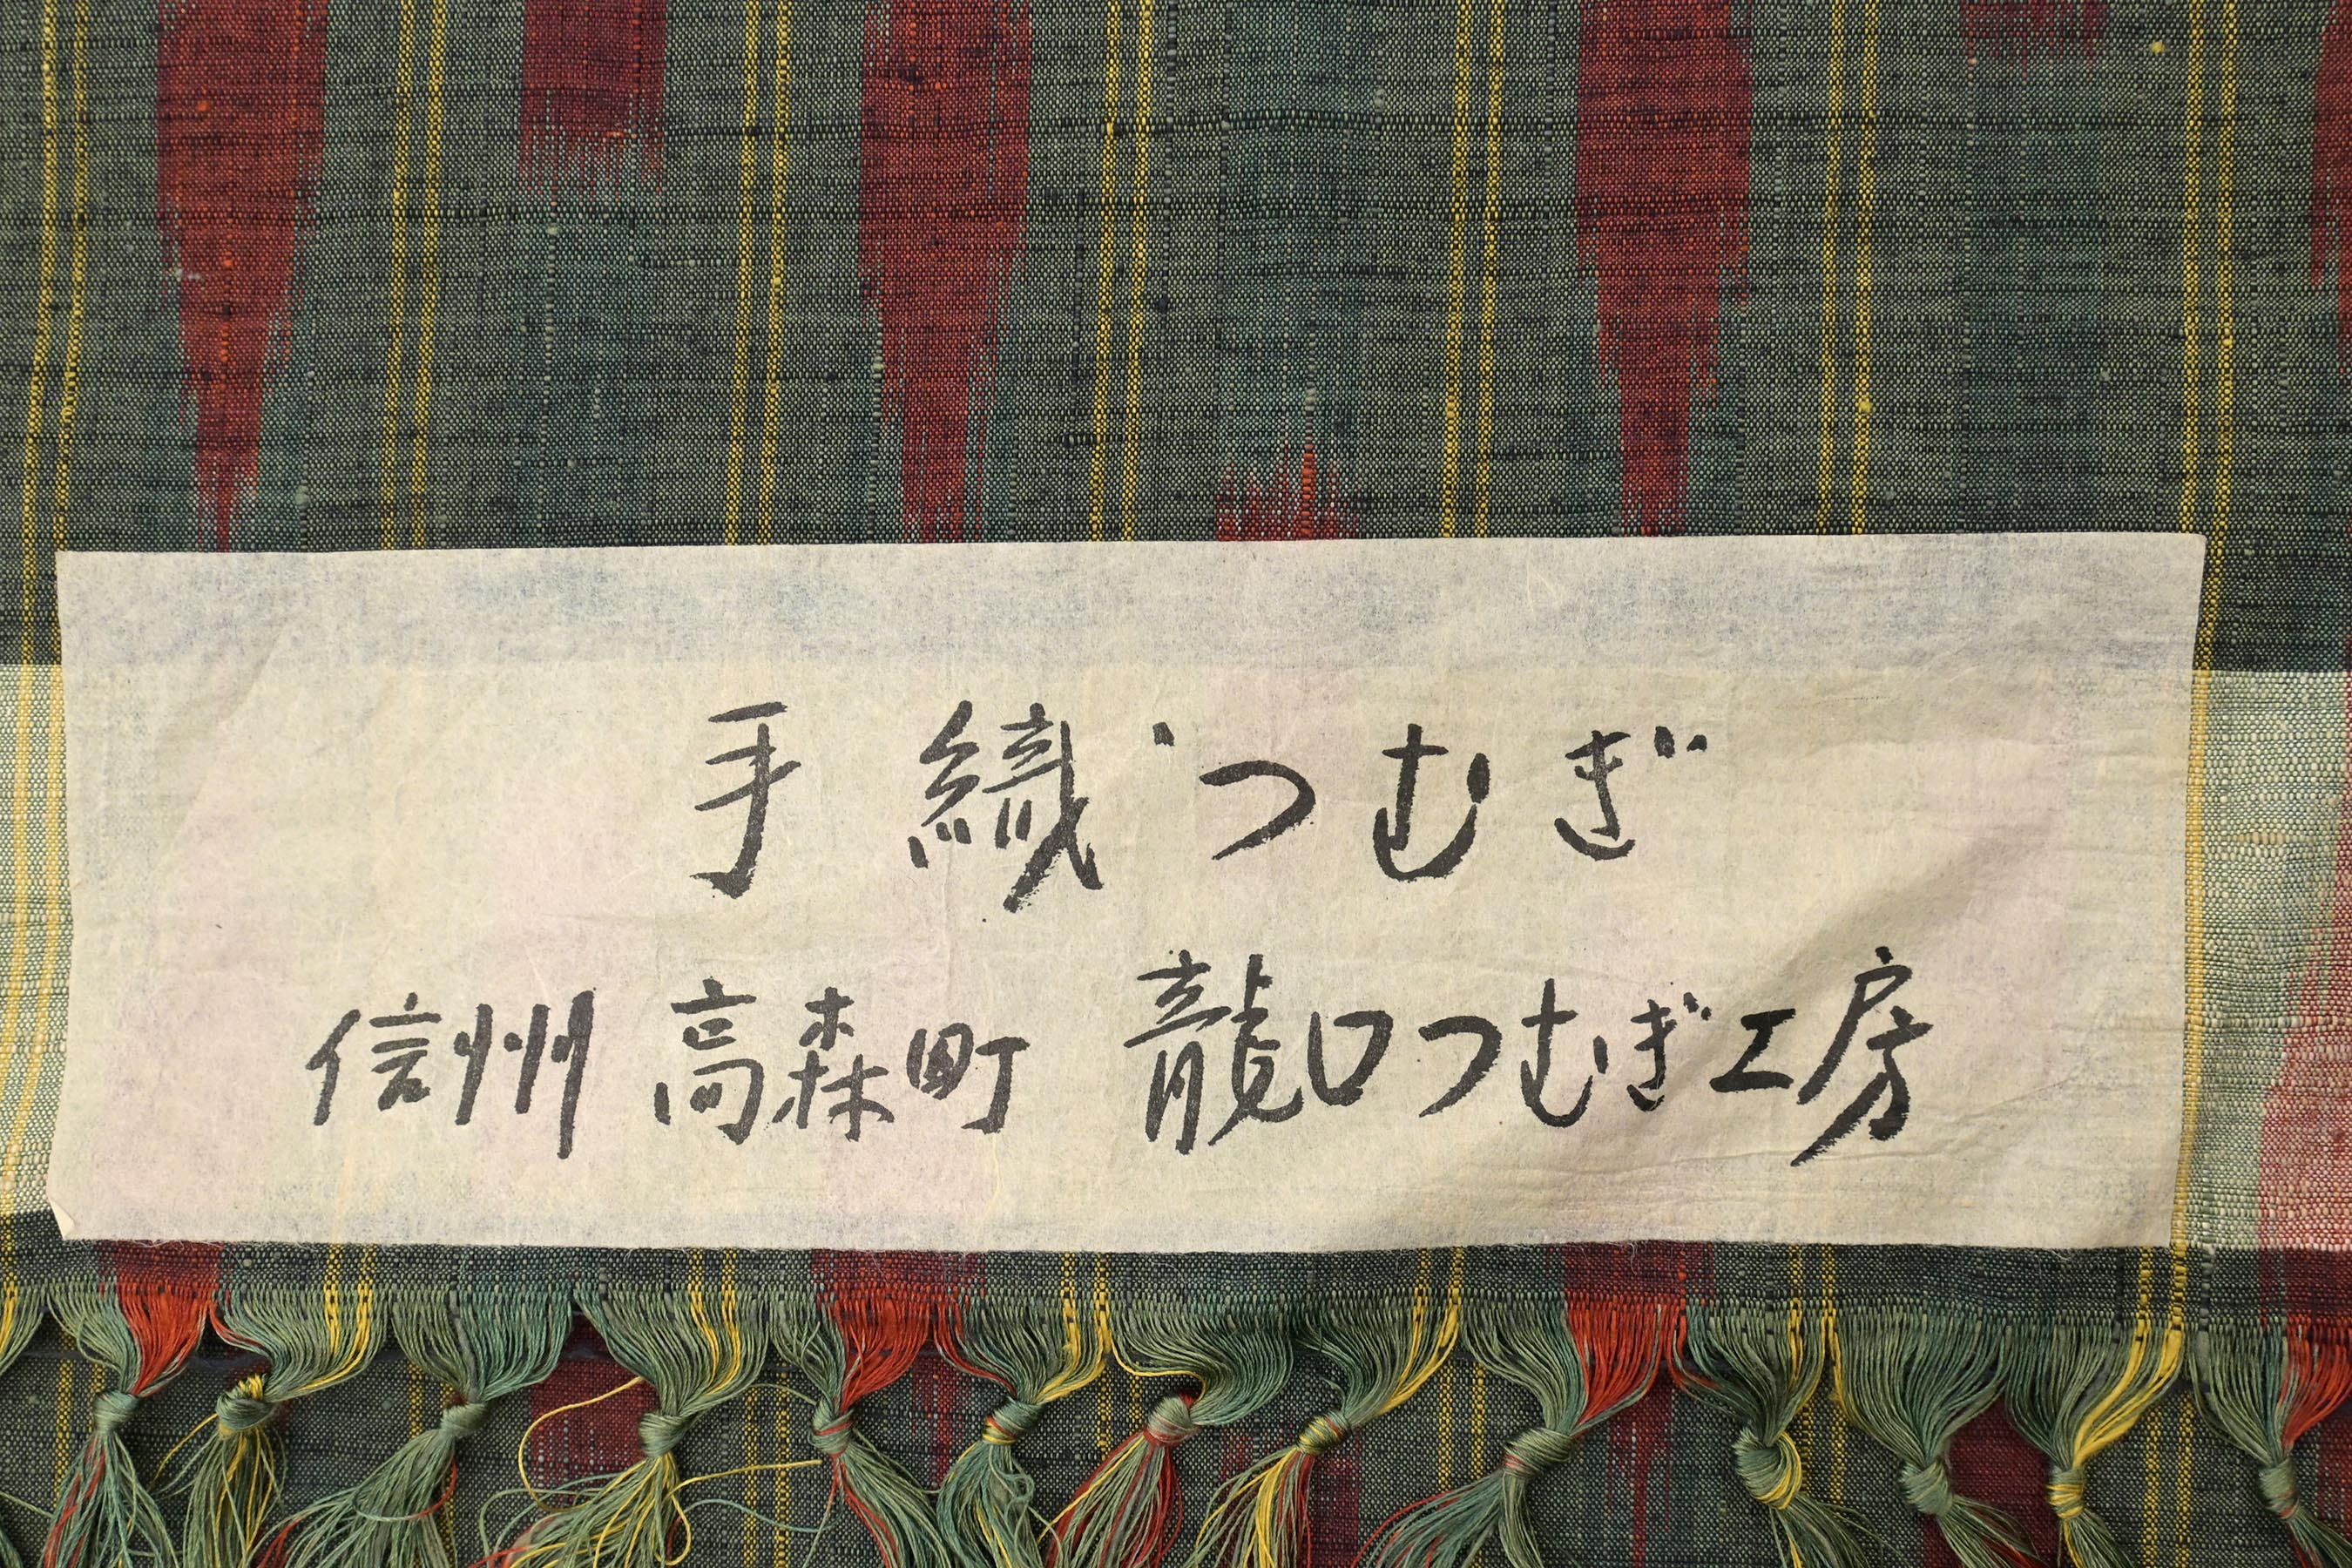 手織つむぎ
信州 高森町 龍口つむぎ工房